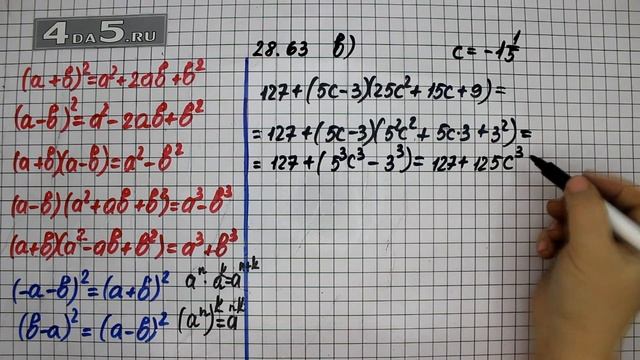 4DA5.RU
(a+b)²=a²+2ab+b²
(a-b)²=a²-2ab+b²
(a+b)(a-b)=a²-b²
(a-b)(a²+ab+b²)=a³-b³
(a+b)(a²-ab+b²)=a³+b³
(-a-b)²=(a+b)² aⁿ·aᵏ=aⁿ⁺ᵏ
(b-a)²=(a-b)² (aⁿ)ᵏ=aⁿᵏ
28.63 в) c=-1 1/5
127+(5c-3)(25c²+15c+9)=
=127+(5c-3)(5²c²+5c·3+3²)=
=127+(5³c³-3³)=127+125c³